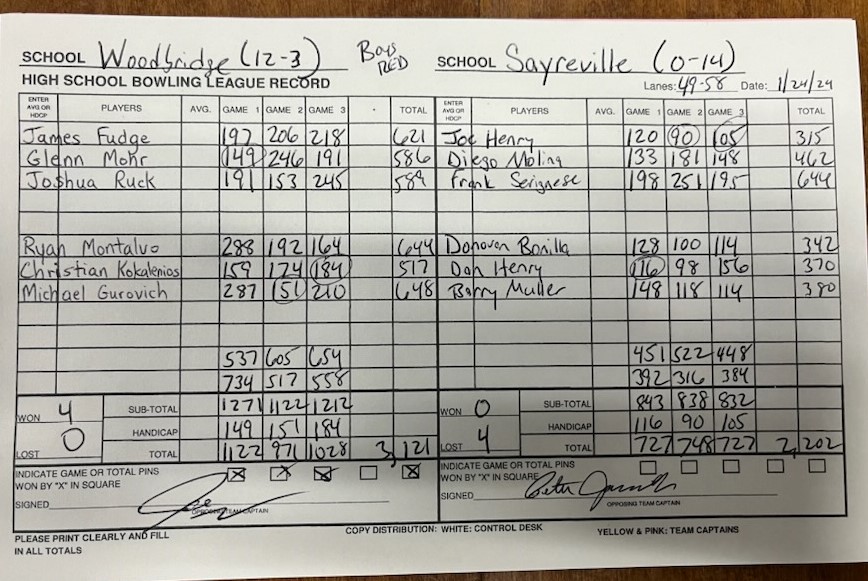 SCHOOL Woodbridge (12-3) Boys RED SCHOOL Sayreville (0-14)
HIGH SCHOOL BOWLING LEAGUE RECORD Lanes: 49-58 Date: 1/24/24
ENTER AVG OR HDCP PLAYERS AVG. GAME 1 GAME 2 GAME 3 TOTAL ENTER AVG OR HDCP PLAYERS AVG. GAME 1 GAME 2 GAME 3 TOTAL
James Fudge 197 206 218 621 Joe Henry 120 90 105 315
Glenn Mohr 149 246 191 586 Diego Molina 133 181 148 462
Joshua Ruck 191 153 245 589 Frank Serignese 198 251 195 644
Ryan Montalvo 288 192 164 644 Donovan Bonilla 128 100 114 342
Christian Kokalenios 159 174 184 517 Dan Henry 116 98 156 370
Michael Gurovich 287 151 210 648 Barry Muller 148 118 114 380
537 605 654 451 522 448
734 517 558 392 316 384
WON 4 SUB-TOTAL 1271 1122 1212 WON 0 SUB-TOTAL 843 838 832
HANDICAP 149 151 184 HANDICAP 116 90 105
LOST 0 TOTAL 1122 971 1028 3,121 LOST 4 TOTAL 727 748 727 2,202
INDICATE GAME OR TOTAL PINS INDICATE GAME OR TOTAL PINS
WON BY "X" IN SQUARE X X X X WON BY "X" IN SQUARE
SIGNED SIGNED
OPPOSING TEAM CAPTAIN OPPOSING TEAM CAPTAIN
PLEASE PRINT CLEARLY AND FILL COPY DISTRIBUTION: WHITE: CONTROL DESK YELLOW & PINK: TEAM CAPTAINS
IN ALL TOTALS